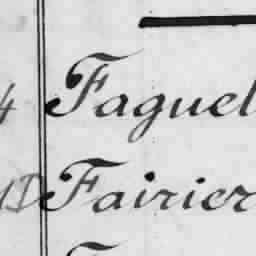 4 Faguel
D Fairier